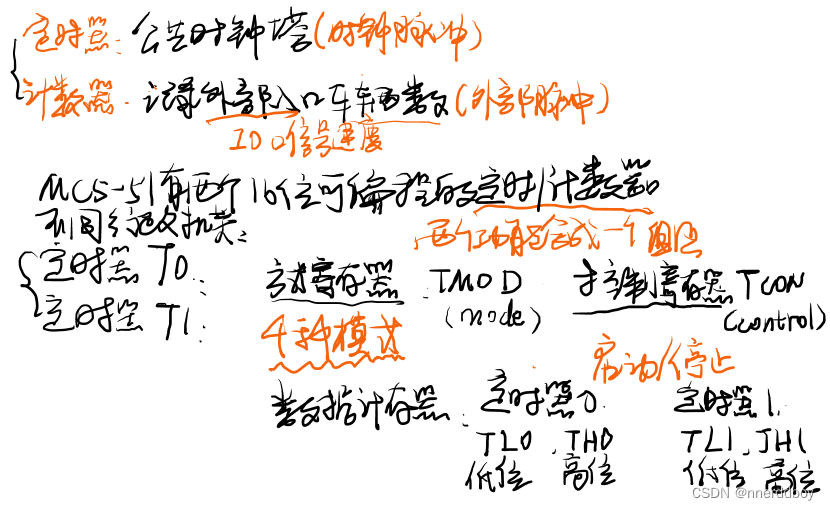 定时器：公共时钟塔(时钟脉冲)
计数器：记录外部入口车辆数(外部脉冲)
IO口信号速度
MCS-51有两个16位可编程的定时/计数器
不同
两个功能合成一个
定时器T0：
定时器T1：
方式寄存器：TMOD
(mode)
控制寄存器TCON
(control)
4种模式
启动/停止
数据寄存器：
定时器0.
定时器1.
TL0、TH0
TL1、TH1
低位 高位
低位 高位
CSDN @nnerddboy